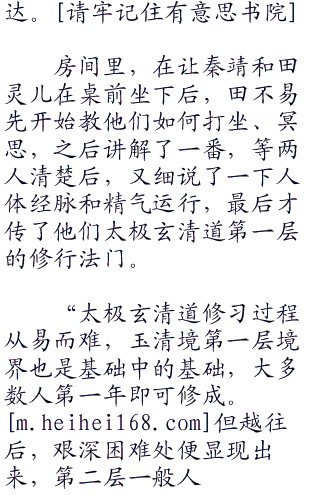 达。[请牢记住有意思书院]
房间里，在让秦靖和田
灵儿在桌前坐下后，田不易
先开始教他们如何打坐、冥
思，之后讲解了一番，等两
人清楚后，又细说了一下人
体经脉和精气运行，最后才
传了他们太极玄清道第一层
的修行法门。
“太极玄清道修习过程
从易而难，玉清境第一层境
界也是基础中的基础，大多
数人第一年即可修成。
[m.heihei168.com]但越往
后，艰深困难处便显现出
来，第二层一般人